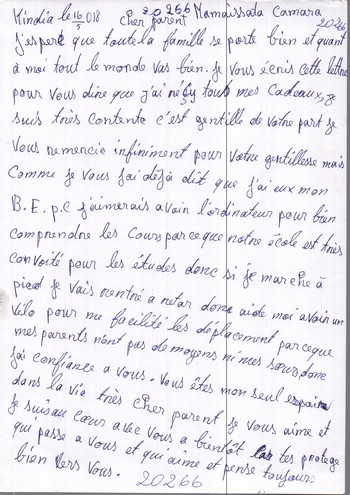 Kindia le 16/5 018 20266 Mamaïssata Camara
cher parent 20266
J'espere que toute la famille se porte bien et quant
à moi tout le monde vas bien. Je vous écris cette lettre
pour vous dire que j'ai reçu tout mes cadeaux, je
suis très contente c'est gentille de votre part je
vous remencie infiniment pour votre gentillesse mais
comme je vous j'ai déjà dit que j'ai eux mon
B.E.p.c j'aimerais avoir l'ordinateur pour bien
comprendre les cours parceque notre école est très
convoité pour les études donc si je marche à
pied je vais rentré à retar donc aide moi avoir un
vélo pour me facilité les déplacement parceque
mes parents n'ont pas de moyens ni mes donc
j'ai confiance a vous. Vous êtes mon seul espoire
dans la vie très cher parent je vous aime et
je suis au cœur avec vous a bientôt protege
qui passe a vous et qui aime et pense toujours
bien vers vous.
20266